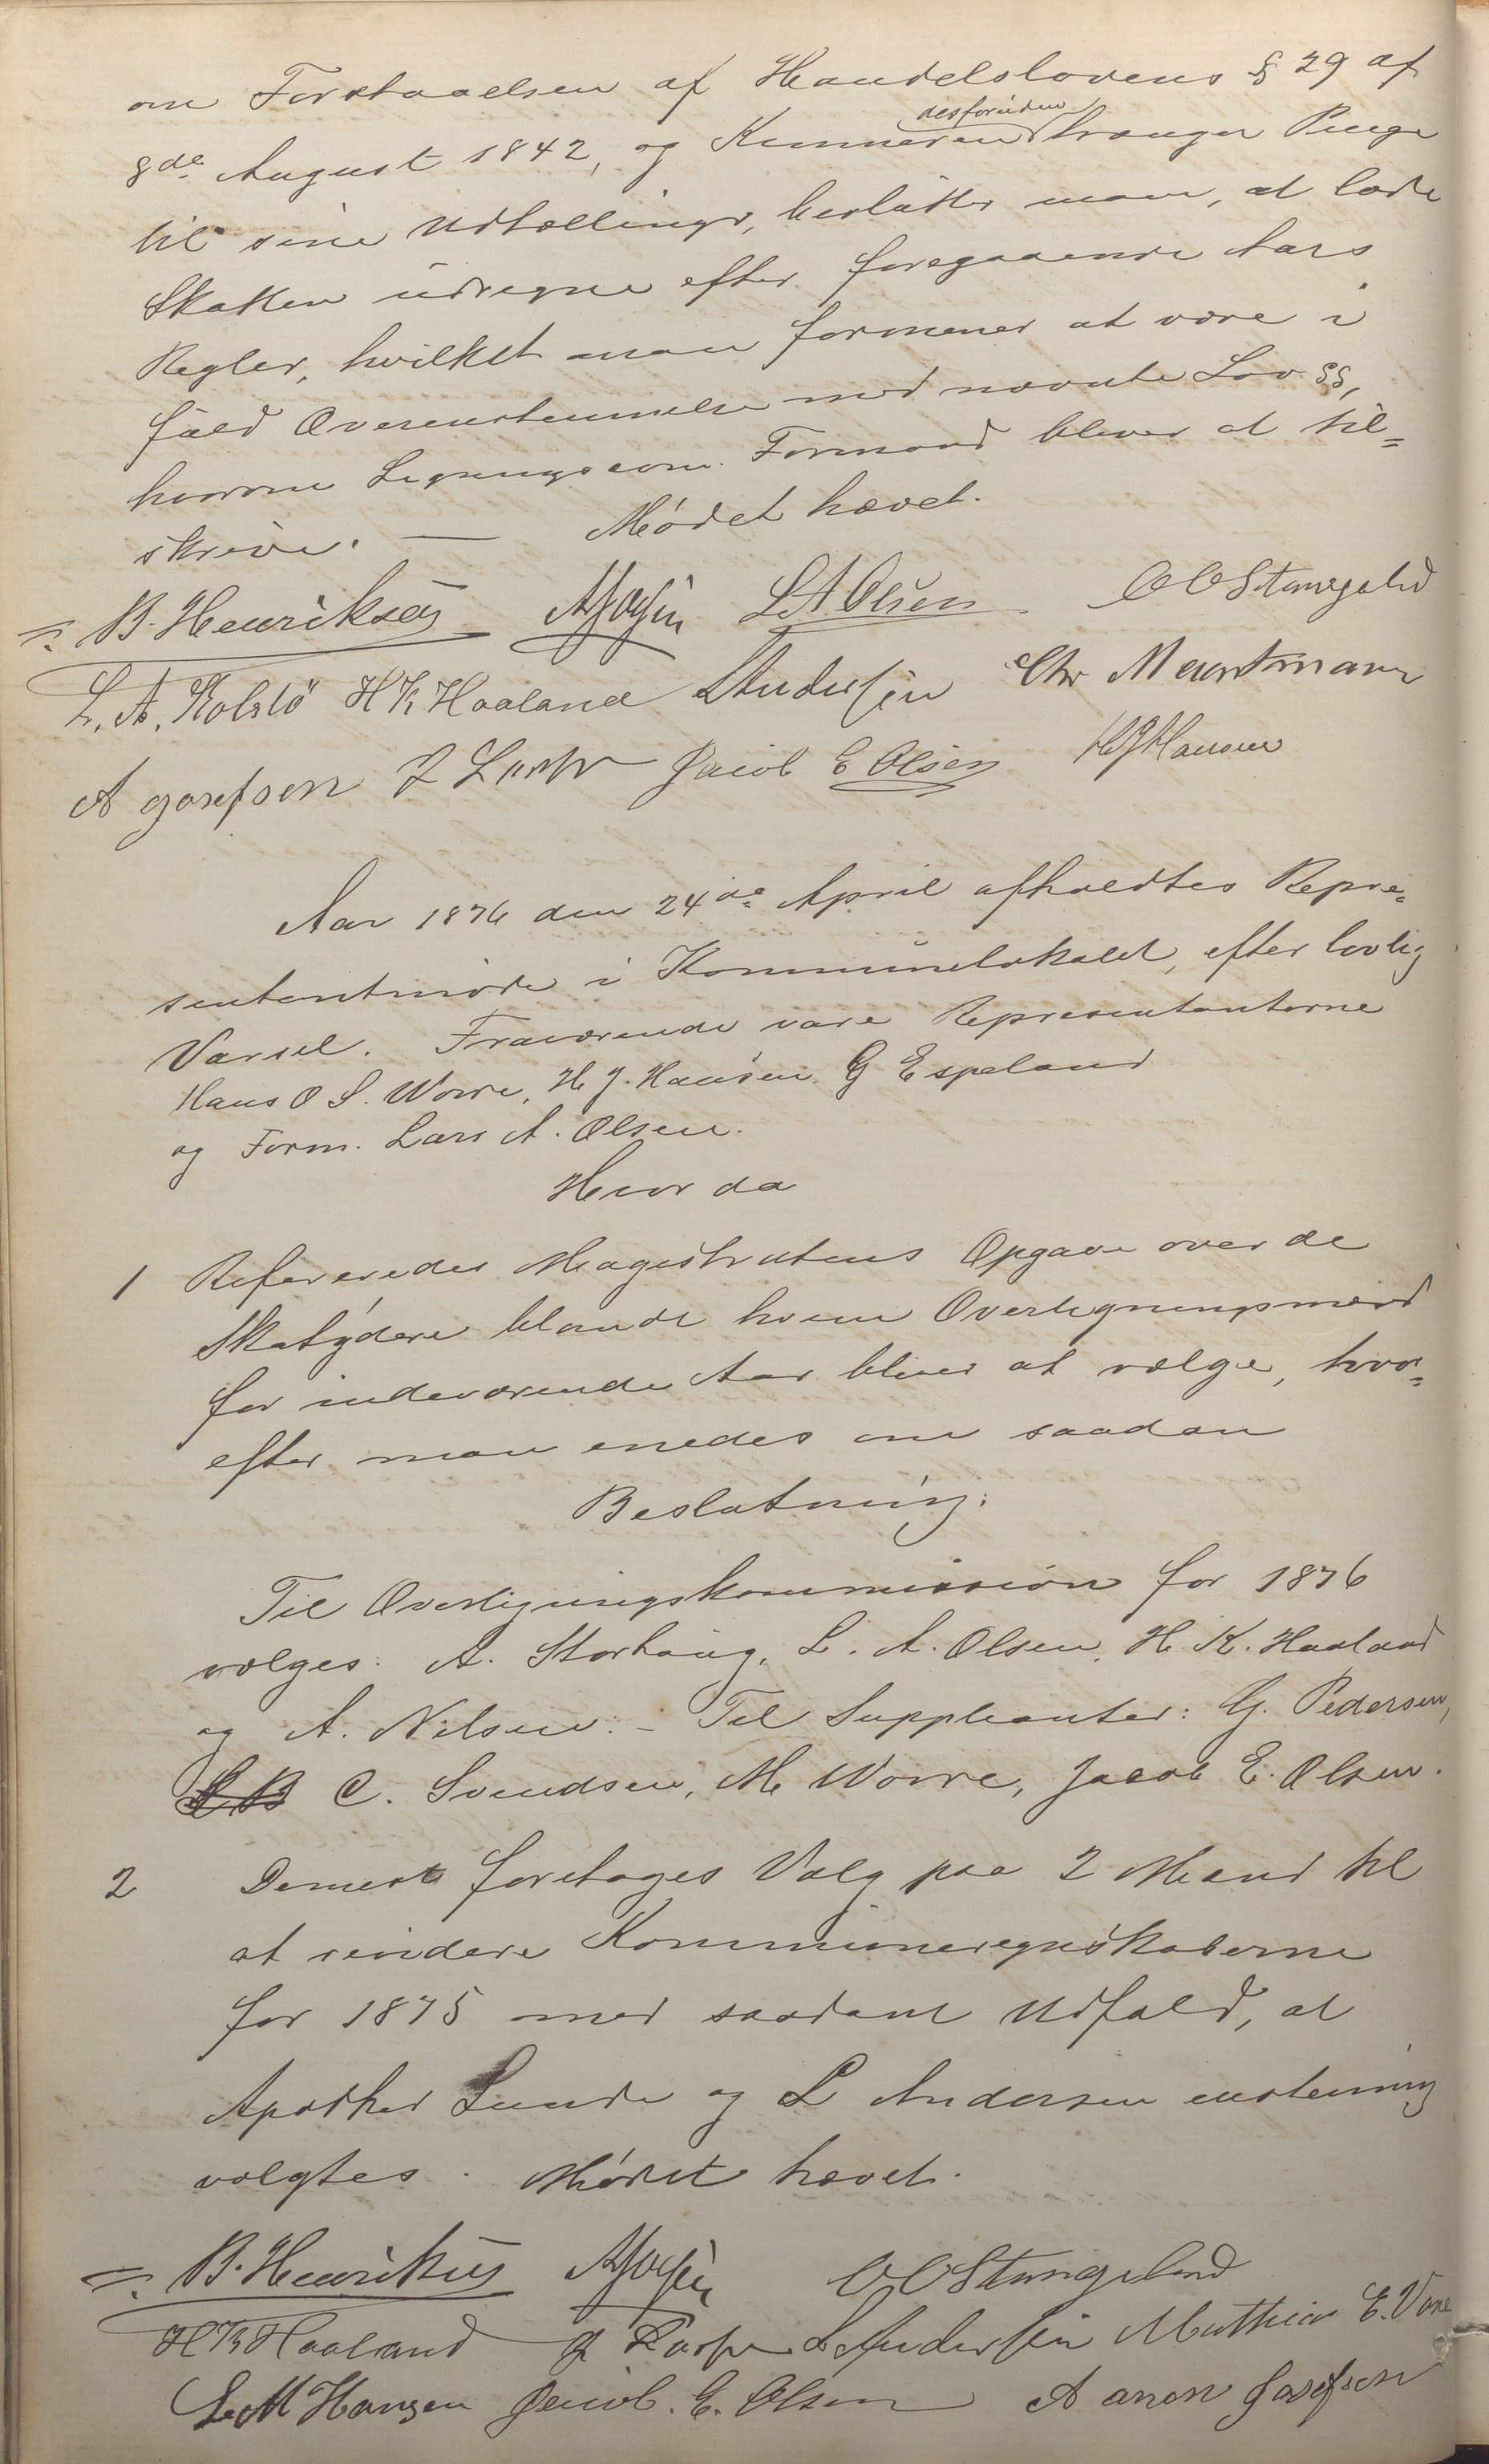 om Forstaaelsen af Handelslovens § 29 af
8de August 1842, og Kemneren desforuden trænger Penge
til sine Udtællinger, beslutter man, at lade
Skatten udregne efter foregaaende Aars
Regler, hvilket man formener at være i
fuld Overensstemmelse med nævnte Lov §§,
hvorom Ligningscom. Formand bliver at til=
skrive. — Mødet hævet.
B. Henriksen L A Olsen O C Stangeland
L. A. Kolstö H K Haaland L Andersen Chr Maartmann
A Josefson Jacob E Olsen H J Hansen
Aar 1876 den 24de April afholdtes Repre=
sentantmøde i Kommunelokalet, efter lovlig
Varsel. Fraværende vare Representanterne
Hans O S. Worre, H J. Hansen, G Espeland
og Form. Lars A. Olsen.
Hvor da
1 Refereredes Magistratens Opgave over de
Skatydere blandt hvem Overligningsmænd
for indeværende Aar bliver at vælge, hvor=
efter man enedes om saadan
Beslutning:
Til Overligningskommission for 1876
vælges: A. Storhaug, L. A. Olsen, H. K. Haaland
og A. Nilsen. – Til Suppleanter: G. Pedersen,
C. Svendsen, M Worre, Jacob E. Olsen.
2 Dernest foretages Valg paa 2 Mænd til
at revidere Kommuneregnskaberne
for 1875 med saadant Udfald, at
Apotheker Lunde og L Andersen enstemmig
valgtes. Mødet hævet.
B. Henriksen O C Stangeland
H K Haaland L Andersen Mathias E. Vore
L. M Hansen Jacob. E. Olsen Aanon Josefsen